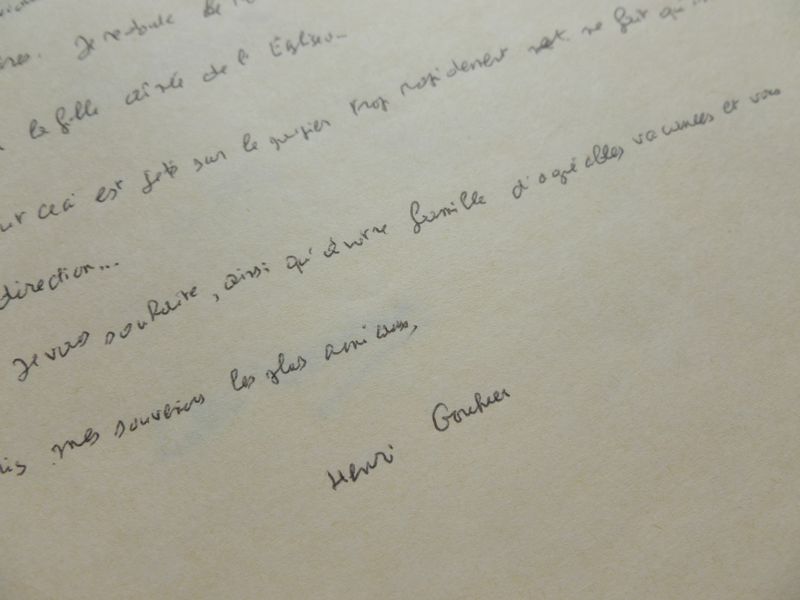 Je redoute
la fille aînée de l'Église...
ceci est jeté sur le papier trop rapidement et ne fait qu'in
direction...
Je vous souhaite, ainsi qu'à votre famille d'agréables vacances et vous
mes souvenirs les plus amicaux,
Henri Gouhier